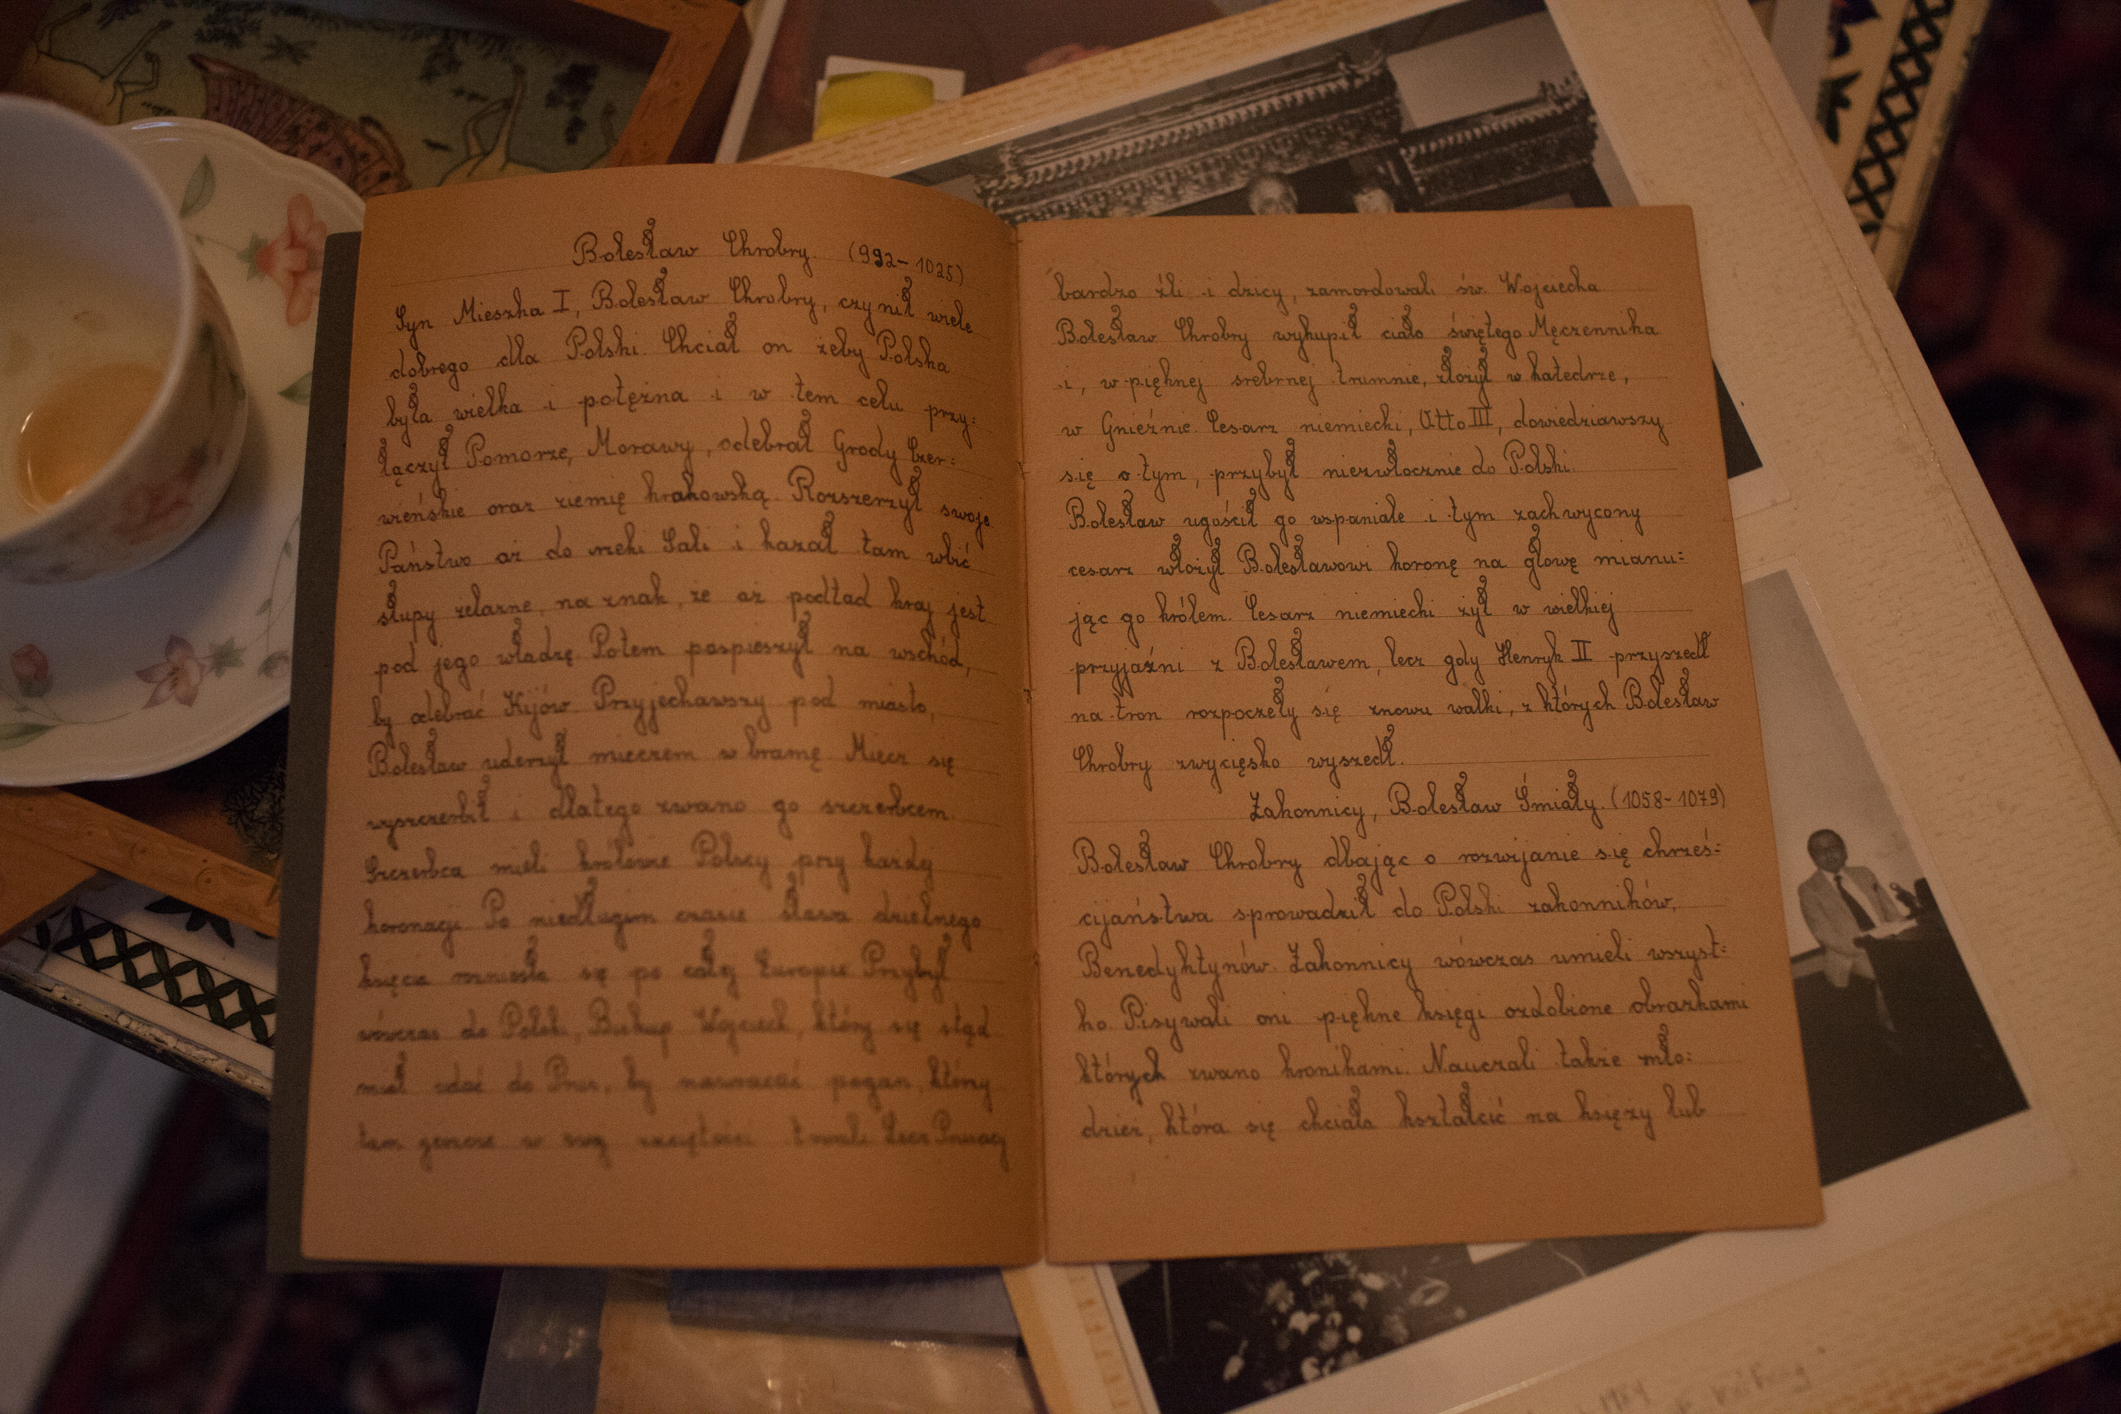 Bolesław Chrobry. (992-1025)
Syn Mieszka I, Bolesław Chrobry, czynił wiele
dobrego dla Polski. Chciał on żeby Polska
była wielka i potężna i w tem celu przy=
łączył Pomorze, Morawy, odebrał Grody Czer=
wieńskie oraz ziemię krakowską. Rozszerzył swoje
Państwo aż do rzeki Sali i kazał tam wbić
słupy żelazne, na znak, że aż podtąd kraj jest
pod jego władzę. Potem pospieszył na wschód,
by odebrać Kijów. Przyjechawszy pod miasto,
Bolesław uderzył mieczem w bramę. Miecz się
wyszczerbił i dlatego zwano go szczerbcem.
Szczerbca mieli królowie Polscy przy każdy
koronacji. Po niedługim czasie sława dzielnego
księcia rozniosła się po całej Europie. Przybył
wówczas do Polski, Biskup Wojciech, który się stąd
miał udać do Prus, by nawracać pogan, który
tam jeszcze w swej Lecz Prusacy
bardzo źli i dzicy, zamordowali św. Wojciecha
Bolesław Chrobry wykupił ciało świętego Męczennika
i, w pięknej srebrnej trumnie, złożył w katedrze,
w Gnieźnie. Cesarz niemiecki, Otto III, dowiedziawszy
się o tym, przybył niezwłocznie do Polski.
Bolesław ugościł go wspaniale i tym zachwycony
cesarz włożył Bolesławowi koronę na głowę mianu=
jąc go królem. Cesarz niemiecki żył w wielkiej
przyjaźni z Bolesławem, lecz gdy Henryk II przyszedł
na tron rozpoczęły się znowu walki, z których Bolesław
Chrobry zwycięsko wyszedł.
Zakonnicy, Bolesław Śmiały. (1058-1079)
Bolesław Chrobry dbając o rozwijanie się chrześ=
cijaństwa sprowadził do Polski zakonników,
Benedyktynów. Zakonnicy wówczas umieli wszyst=
ko. Pisywali oni piękne księgi ozdobione obrazkami
których zwano kronikami. Nauczali także mło=
dzież, która się chciała kształcić na księży lub
1984